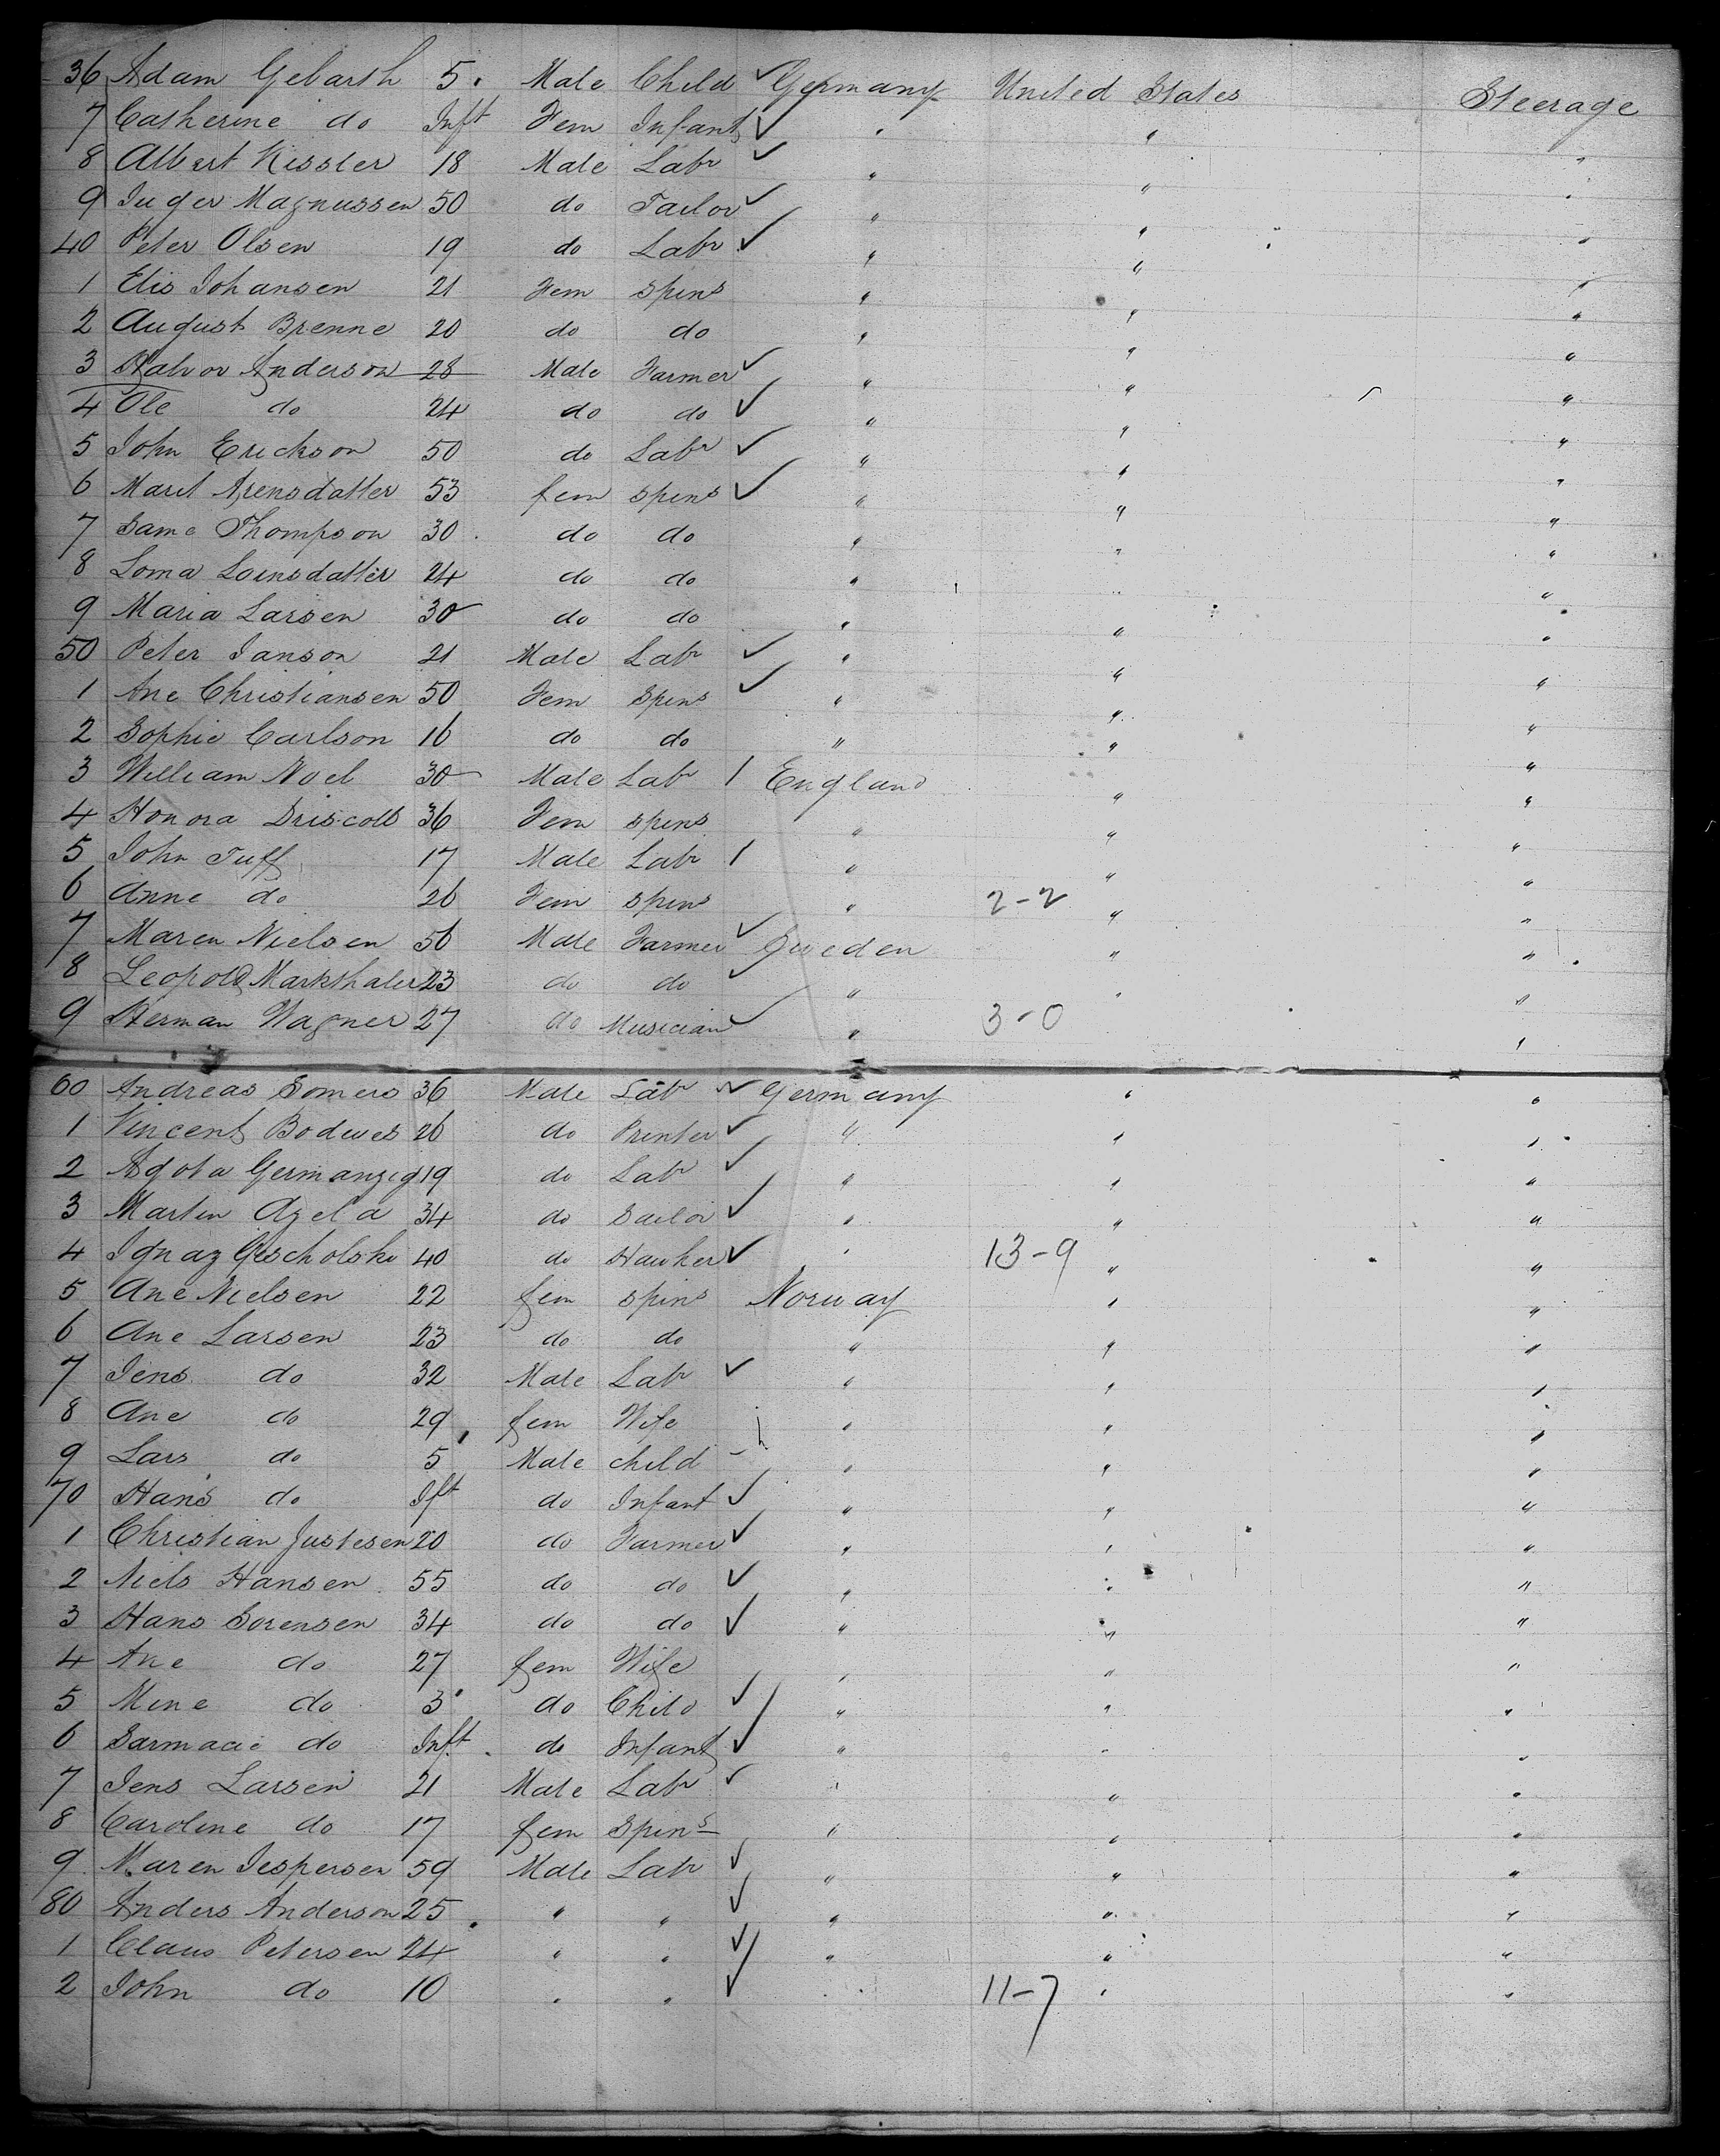 36 Adam Gebarth 5 Male Child ✓ Germany United States Steerage
7 Catherine do Inft Fem Infant ✓ " " "
8 Albert Kissler 18 Male Labr ✓ " " "
9 Inger Magnussen 50 do Tailor ✓ " " "
40 Peter Olsen 19 do Labr ✓ " " "
1 Elis Johansen 21 Fem Spins " " "
2 August Brenne 20 do do " " "
3 Halvor Anderson 28 Male Farmer ✓ " " "
4 Ole do 24 do do ✓ " " "
5 John Erickson 50 do Labr ✓ " " "
6 Marit Arensdatter 53 fem spins ✓ " " "
7 Same Thompson 30 do do " " "
8 Loma Loinsdatter 24 do do " " "
9 Maria Larsen 30 do do " " "
50 Peter Janson 21 Male Labr ✓ " " "
1 Ane Christiansen 50 Fem Spins ✓ " " "
2 Sophie Carlson 16 do do " " "
3 William Noel 30 Male Labr / England " "
4 Honora Driscoll 36 Fem spins " " "
5 John Tuff 17 Male Labr / " " "
6 Anne do 26 Fem spins " 2-2 " "
7 Maren Nielsen 56 Male Farmer ✓ Sweden " "
8 Leopold Markthaler 23 do do ✓ " " "
9 Herman Wagner 27 do Musician ✓ " 3-0 "
60 Andreas Somers 36 Male Labr ✓ Germany " "
1 Vincent Bodewes 26 do Printer ✓ " " "
2 Agota Germanzig 19 do Labr ✓ " " "
3 Martin Azela 34 do Sailor ✓ " " "
4 Ignaz 40 do Hawker ✓ " 13-9 " "
5 Ane Nielsen 22 fem spins Norway " "
6 Ane Larsen 23 do do " " "
7 Jens do 32 Male Labr ✓ " " "
8 Ane do 29 fem Wife " " "
9 Lars do 5 Male child " " "
70 Hans do Ift do Infant ✓ " " "
1 Christian Justesen 20 do Farmer ✓ " " "
2 Niels Hansen 55 do do ✓ " " "
3 Hans Sorensen 34 do do ✓ " " "
4 Ane do 27 fem Wife " " "
5 Mine do 3 do Child ✓ " " "
6 Sarmacie do Inft do Infant ✓ " " "
7 Jens Larsen 21 Male Labr ✓ " " "
8 Caroline do 17 fem Spins " " "
9 Maren Jespersen 59 Male Labr ✓ " " "
80 Anders Anderson 25 " " ✓ " " "
1 Claus Petersen 24 " " ✓ " " "
2 John do 10 " " ✓ " 11-7 " "